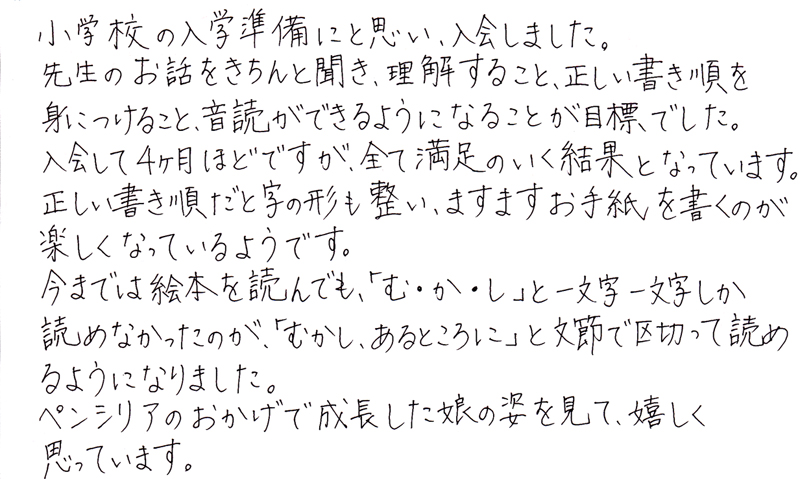 小学校の入学準備にと思い、入会しました。
先生のお話をきちんと聞き、理解すること、正しい書き順を
身につけること、音読ができるようになることが目標でした。
入会して4ヶ月ほどですが、全て満足のいく結果となっています。
正しい書き順だと字の形も整い、ますますお手紙を書くのが
楽しくなっているようです。
今までは絵本を読んでも、「む・か・し」と一文字一文字しか
読めなかったのが、「むかし、あるところに」と文節で区切って読め
るようになりました。
ペンシリアのおかげで成長した娘の姿を見て、嬉しく
思っています。